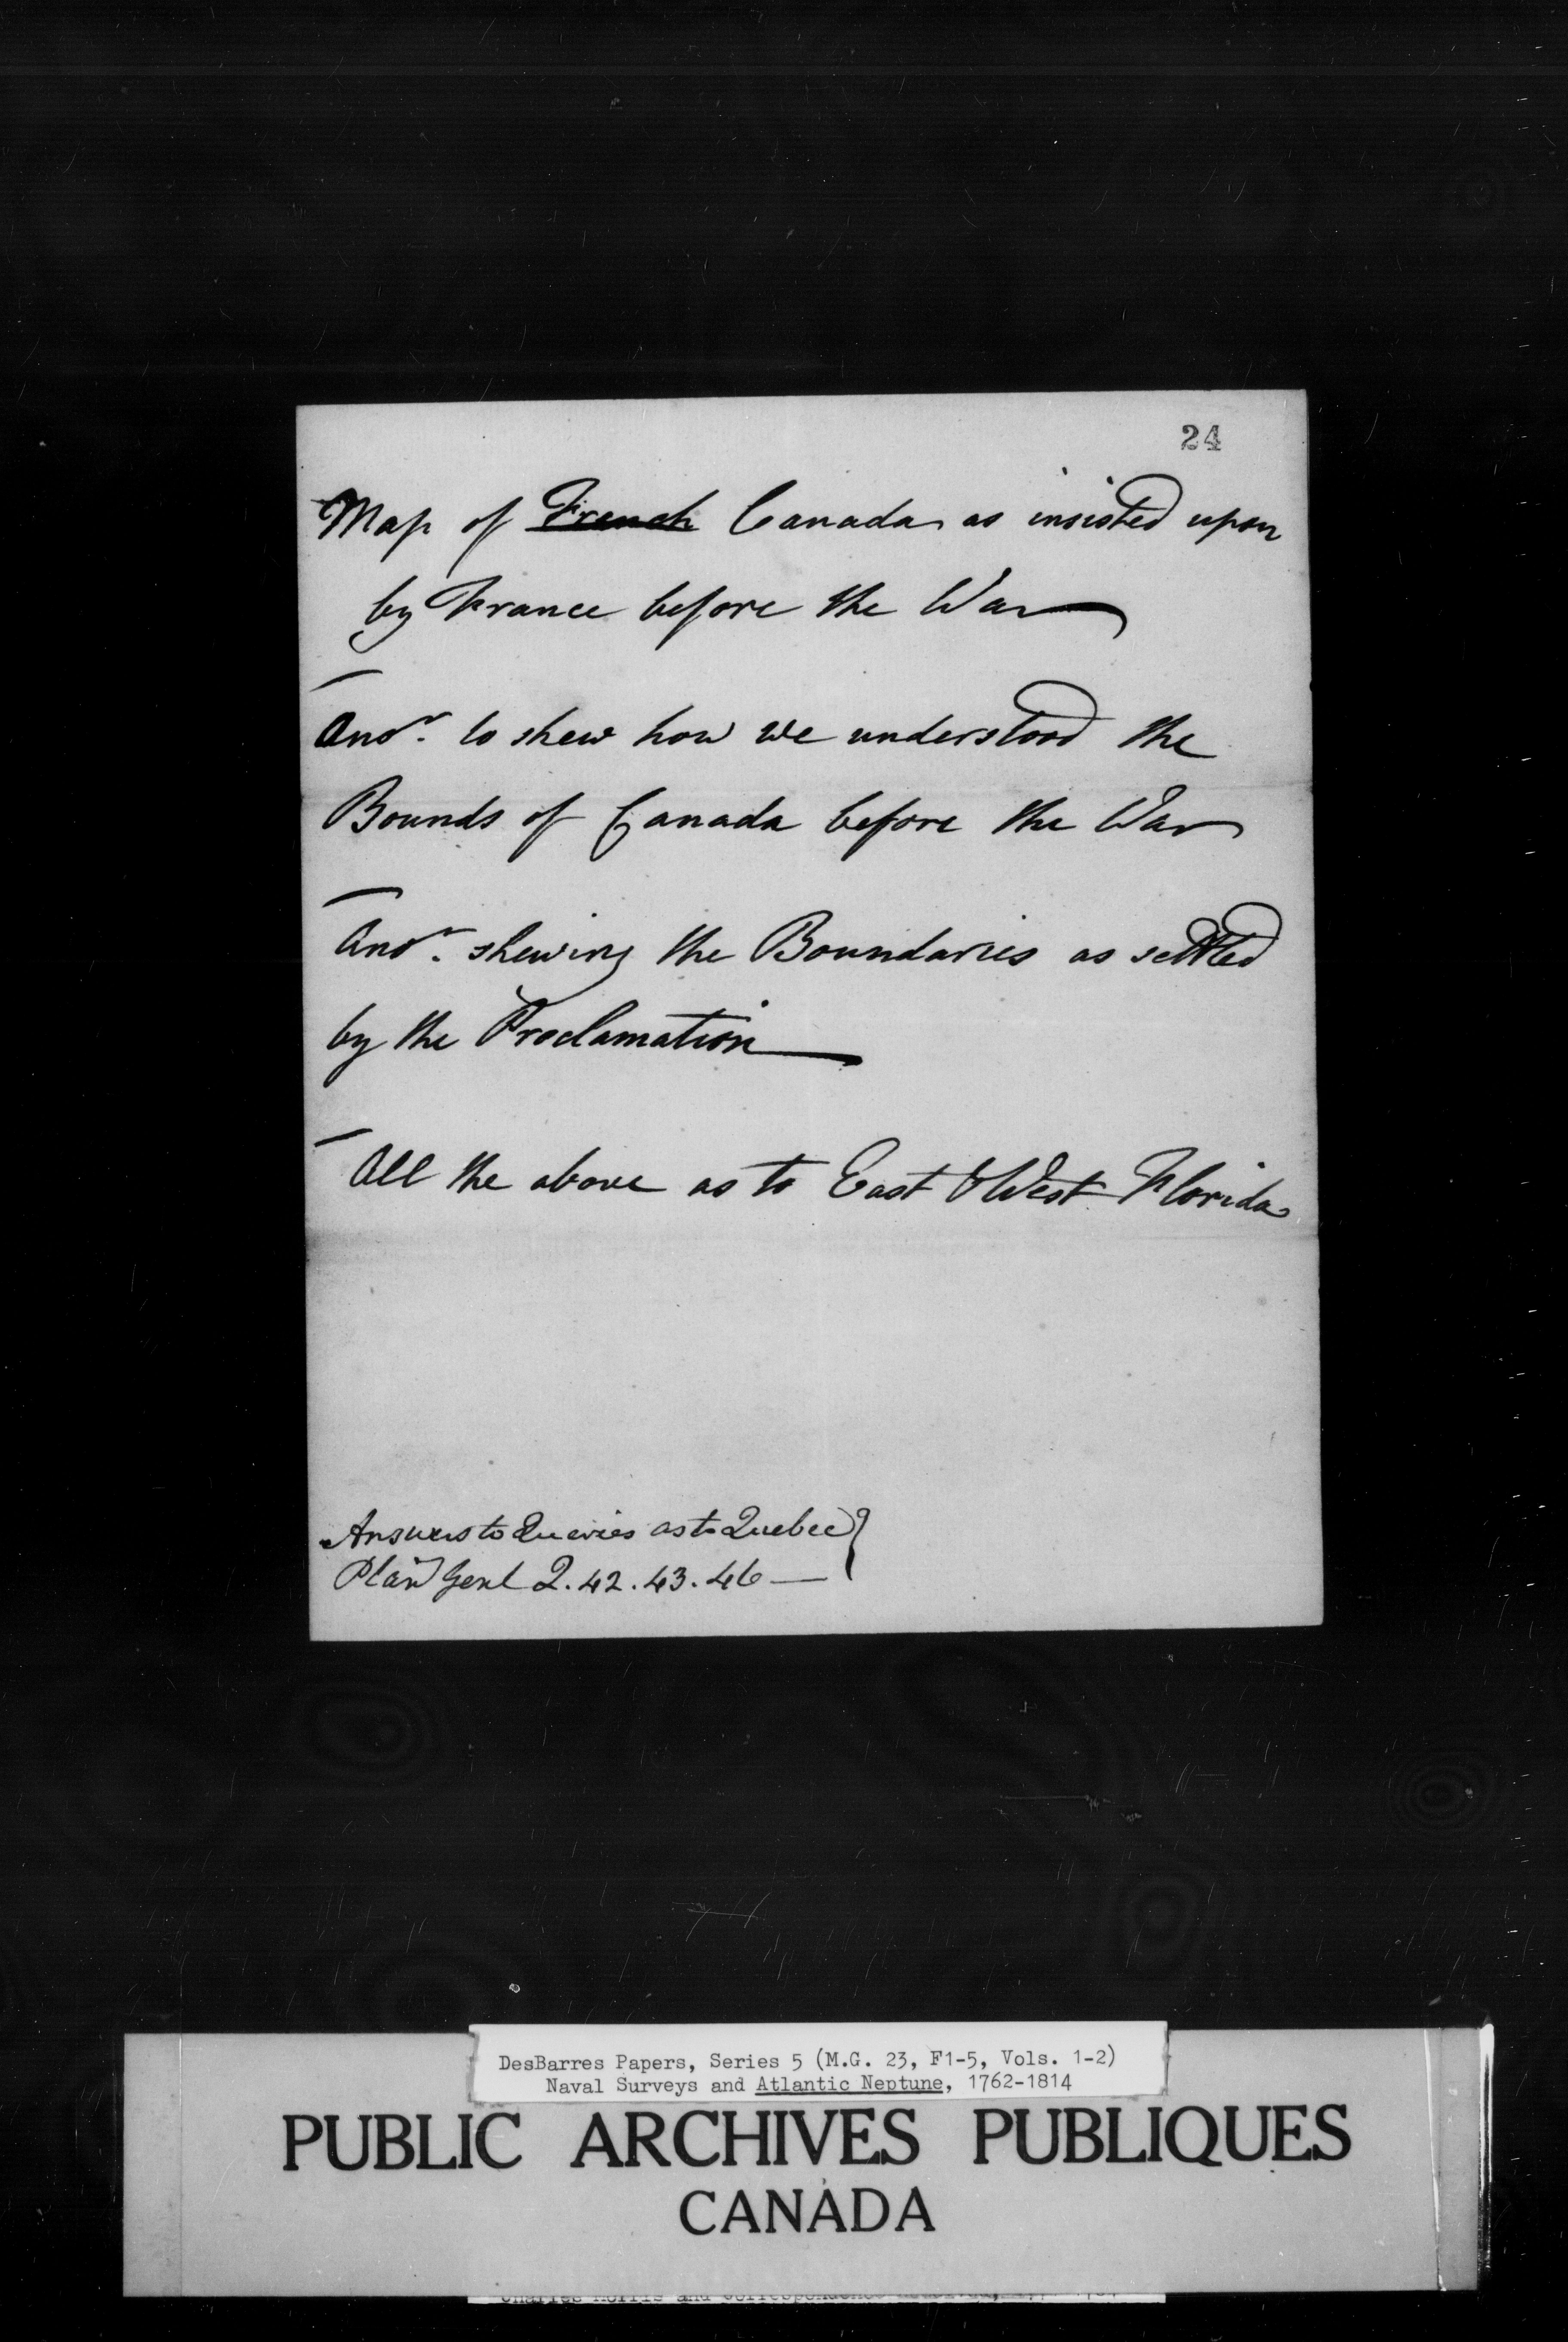 24
Map of French Canada as insisted upon
by France before the War
Anor. to shew how we understood the
Bounds of Canada before the War
Anor. shewing the Boundaries as settled
by the Proclamation
All the above as to East & West Florida
Answers to Queries as to Quebec }
Plan Genl 2. 42. 43. 46 —
DesBarres Papers, Series 5 (M.G. 23, F1-5, Vols. 1-2)
Naval Surveys and Atlantic Neptune, 1762-1814
PUBLIC ARCHIVES PUBLIQUES
CANADA